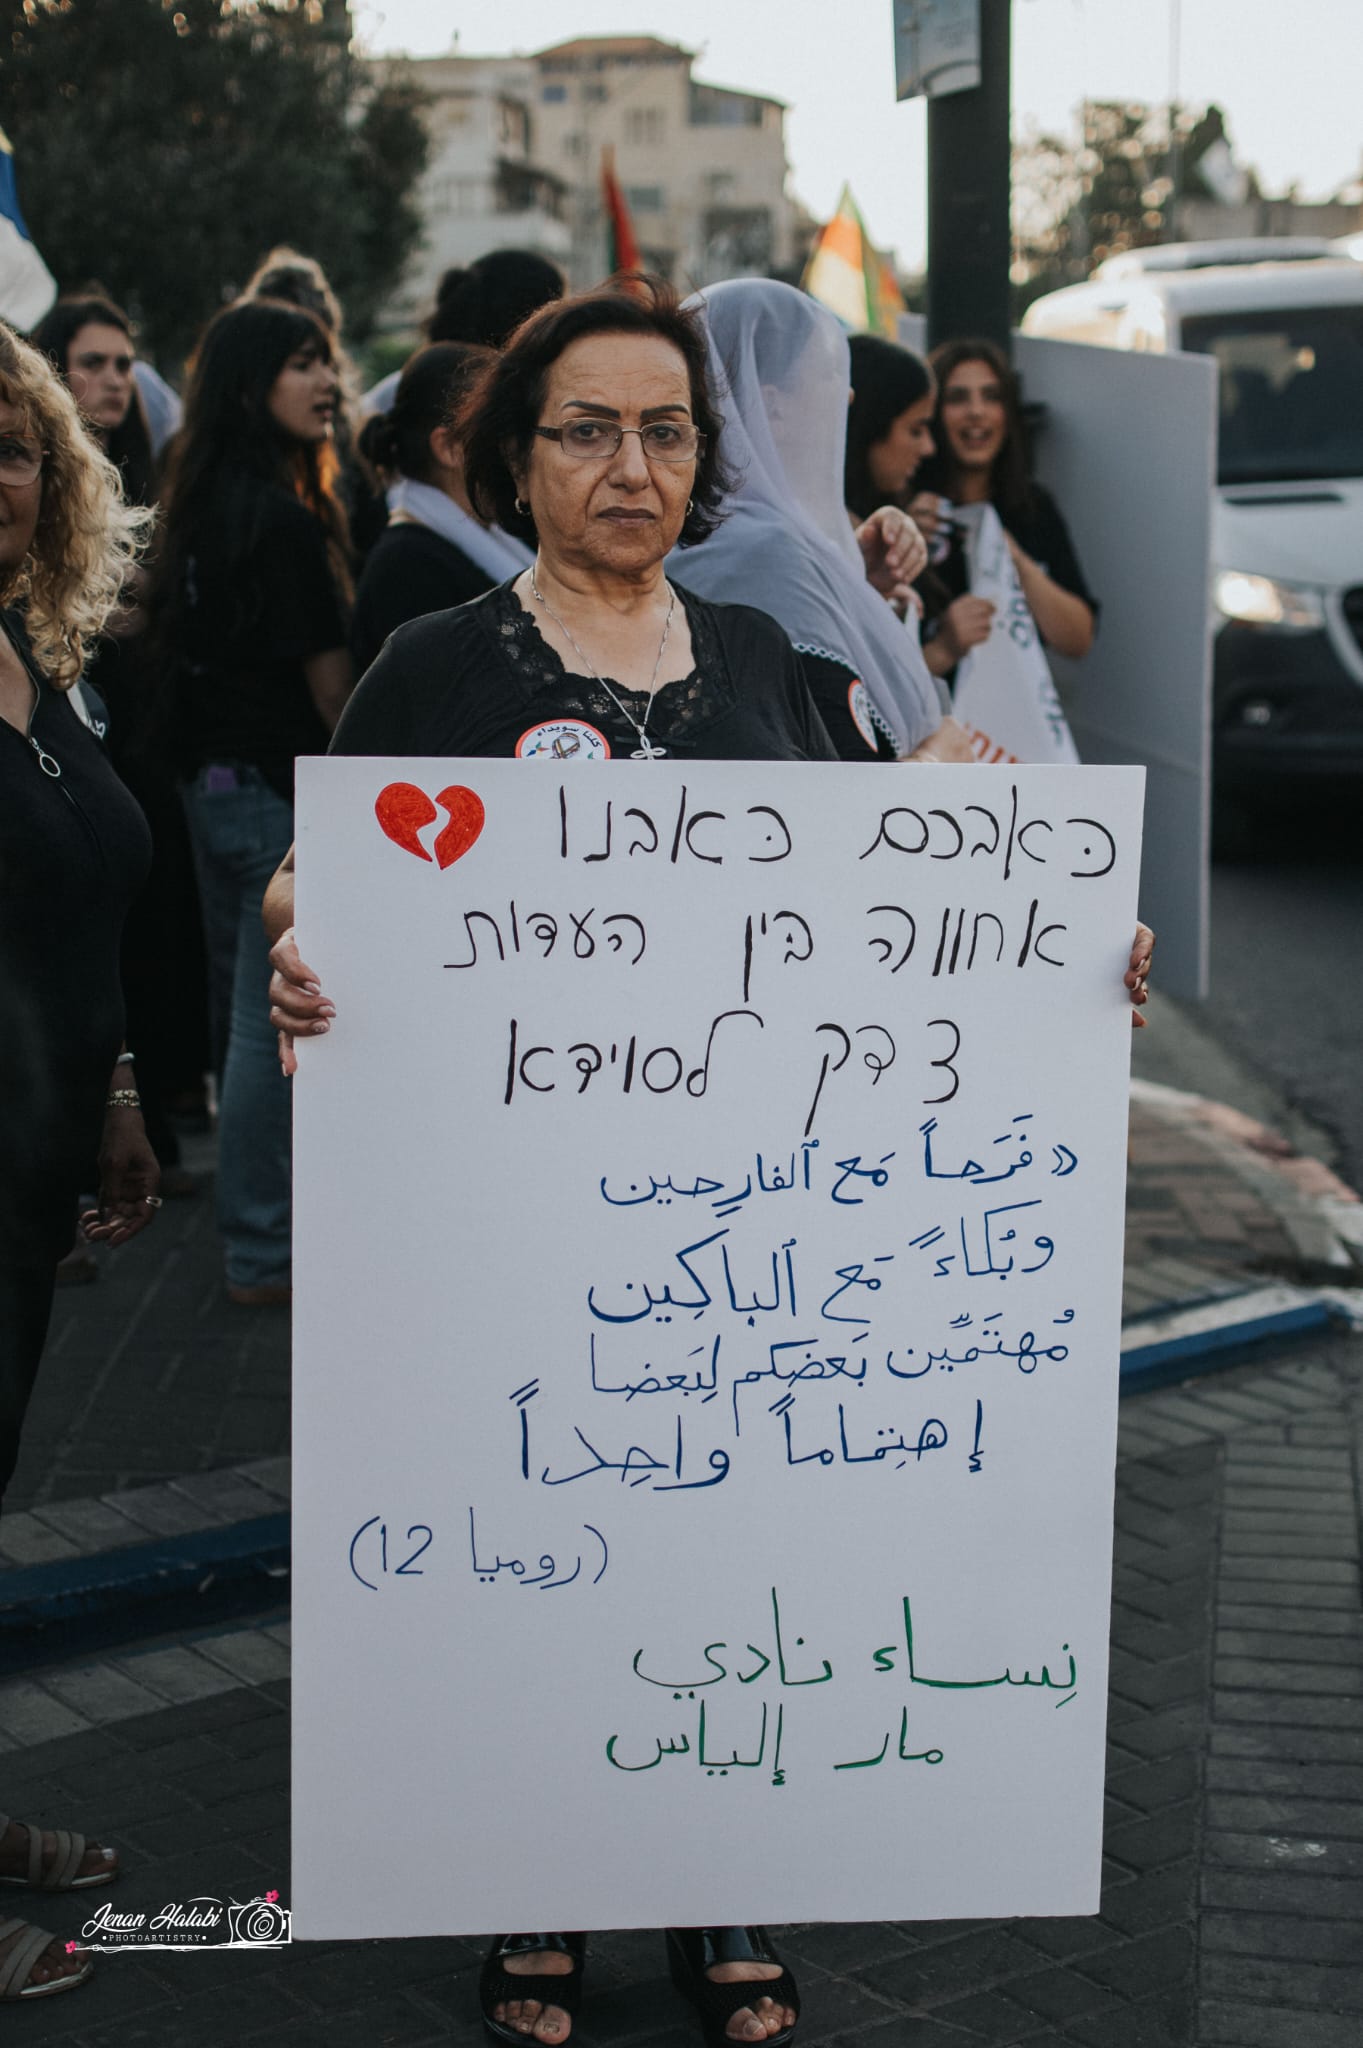 كلنا سويداء
כאבכם כאבנו
אחווה בין העדות
צדק לסוידא
«فَرَحاً مَع ٱلفارِحين
وبُكاءً مَع ٱلباكِين
مُهتَمِّين بَعضكم لِبَعضا
إهتِماماً واحِداً
(روميا 12)
نِساء نادي
مار إلياس
Jenan Halabi
PHOTOARTISTRY